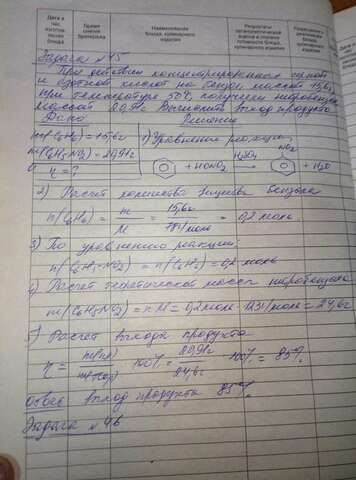 Дата и час изготовления блюда
Время снятия бракеража
Наименование блюда, кулинарного изделия
Результаты органолептической оценки и степени готовности блюда, кулинарного изделия
Разрешение к
Задача №45
При действии концентрированных серной
и азотной кислот на бензол массой 15,6г
при температуре 50°C получили нитробензол
массой 20,91г. Вычислите выход продукта
Дано
Решение
m(C6H6)=15,6г
1) Уравнение реакции
m(C6H5NO2)=20,91г
η=?
+ HONO2 H2SO4 → NO2 + H2O
2) Расчет количества вещества бензола
n(C6H6) = m/M = 15,6г/78г/моль = 0,2 моль
3) По уравнению реакции
n(C6H5NO2) = n(C6H6)=0,2 моль
4) Расчет теоретической массы нитробензола
m(C6H5NO2) = n·M = 0,2моль·123г/моль = 24,6г
5) Расчет выхода продукта
η = m(пр)/m(теор) · 100% = 20,91г/24,6г · 100% = 85%
Ответ выход продукта 85%
Задача №46